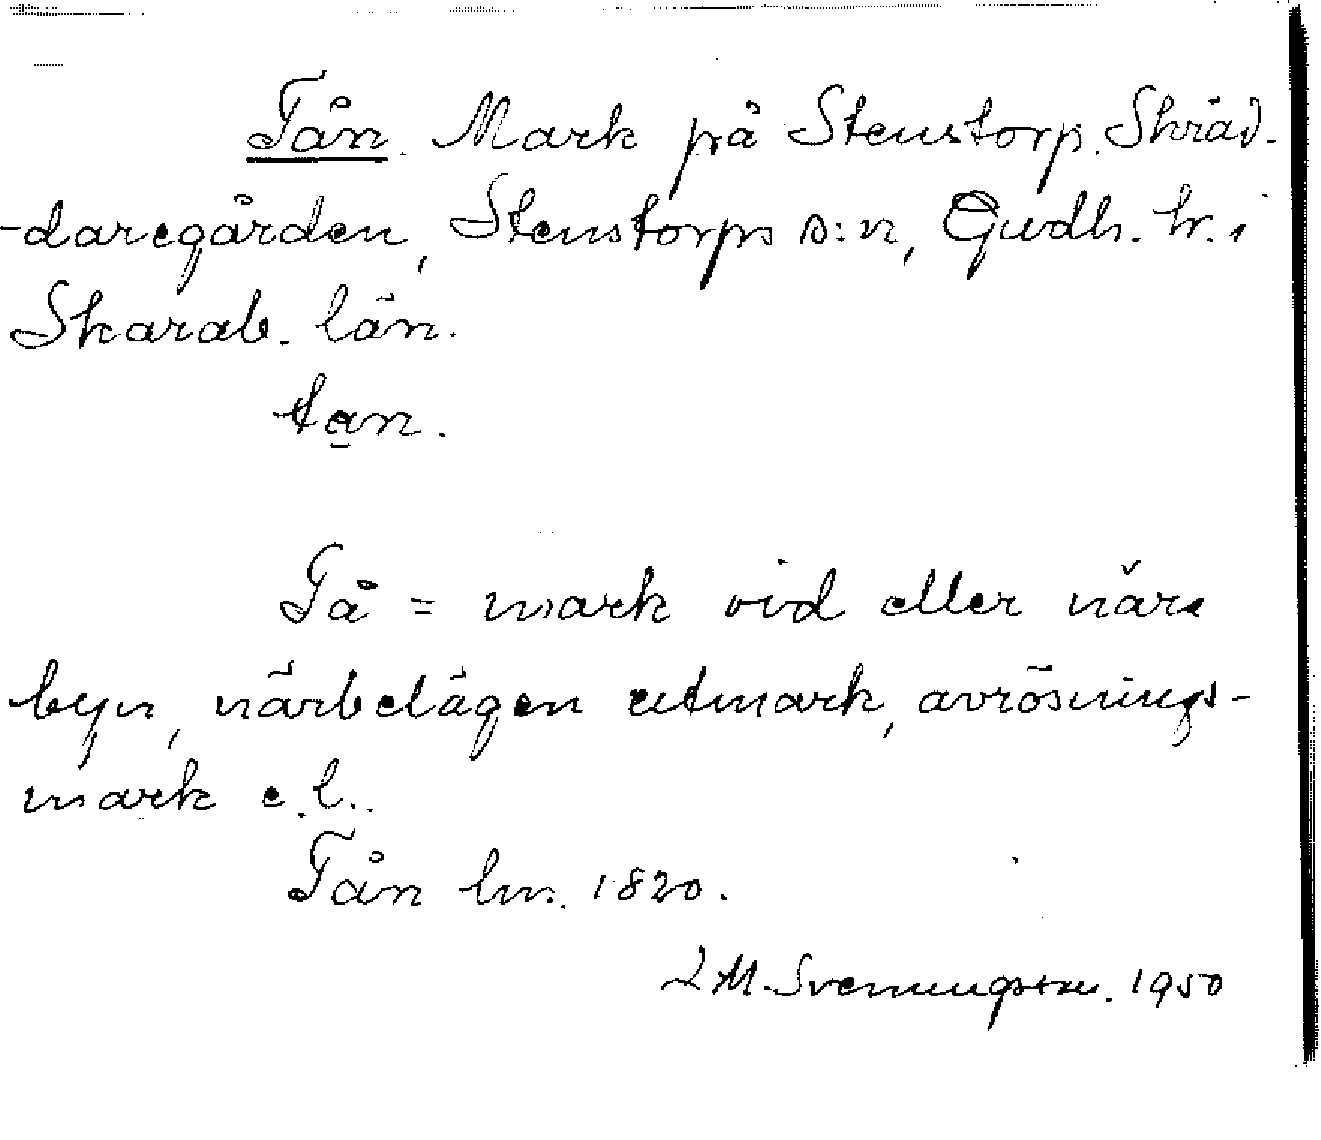 Tån. Mark på Stenstorp. Skräd-
-daregården, Stenstorps s:n, Gudh. hr. i
Skarab. län.
tan.
Tå = mark vid eller nära
byn, närbelägen utmark, avrösnings-
mark e.l..
Tån lm. 1820.
L M. Svenungsson. 1950